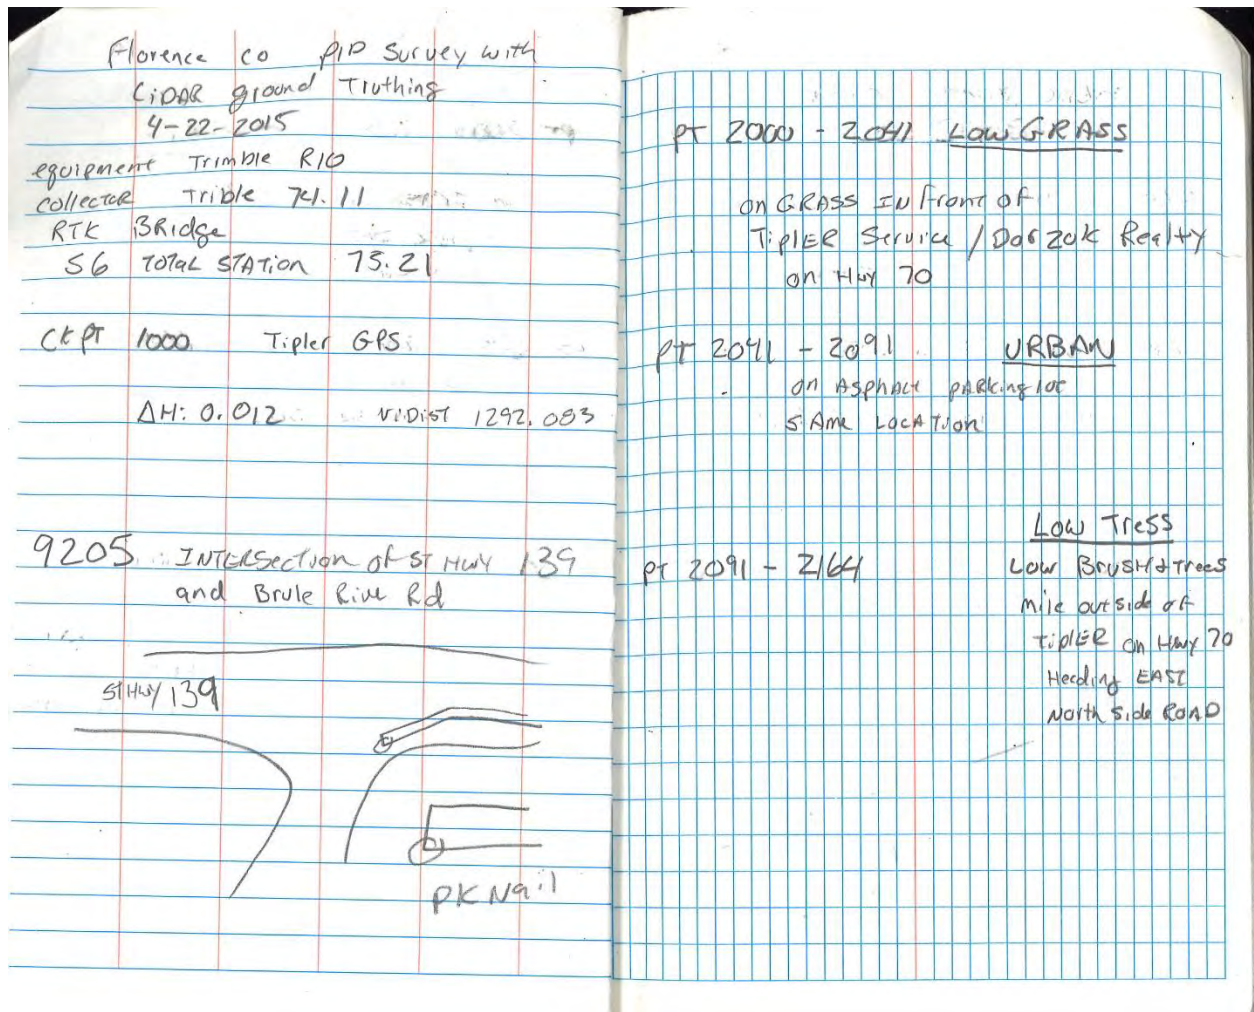 Florence co PID Survey with
LiDAR ground Truthing
4-22-2015
equipment Trimble R10
collector Trible 74.11
RTK BRidge
S6 TOTAL STATION 75.21
CK PT 1000 Tipler GPS
ΔH: 0.012 1292.083
9205 INTERSection of ST HWY 139
and Brule Rive Rd
ST HWY 139
PK Nail
PT 2000 - 2041 LOW GRASS
on GRASS IN front of
TiplER Service / Realty
on Hwy 70
PT 2041 - 2091 URBAN
on ASphALt pARking lot
SAme LOCATion
Low Tress
PT 2091 - 2164 Low BruSH & Trees
mile outside of
TiplER on Hwy 70
Heading EAST
North Side ROAD